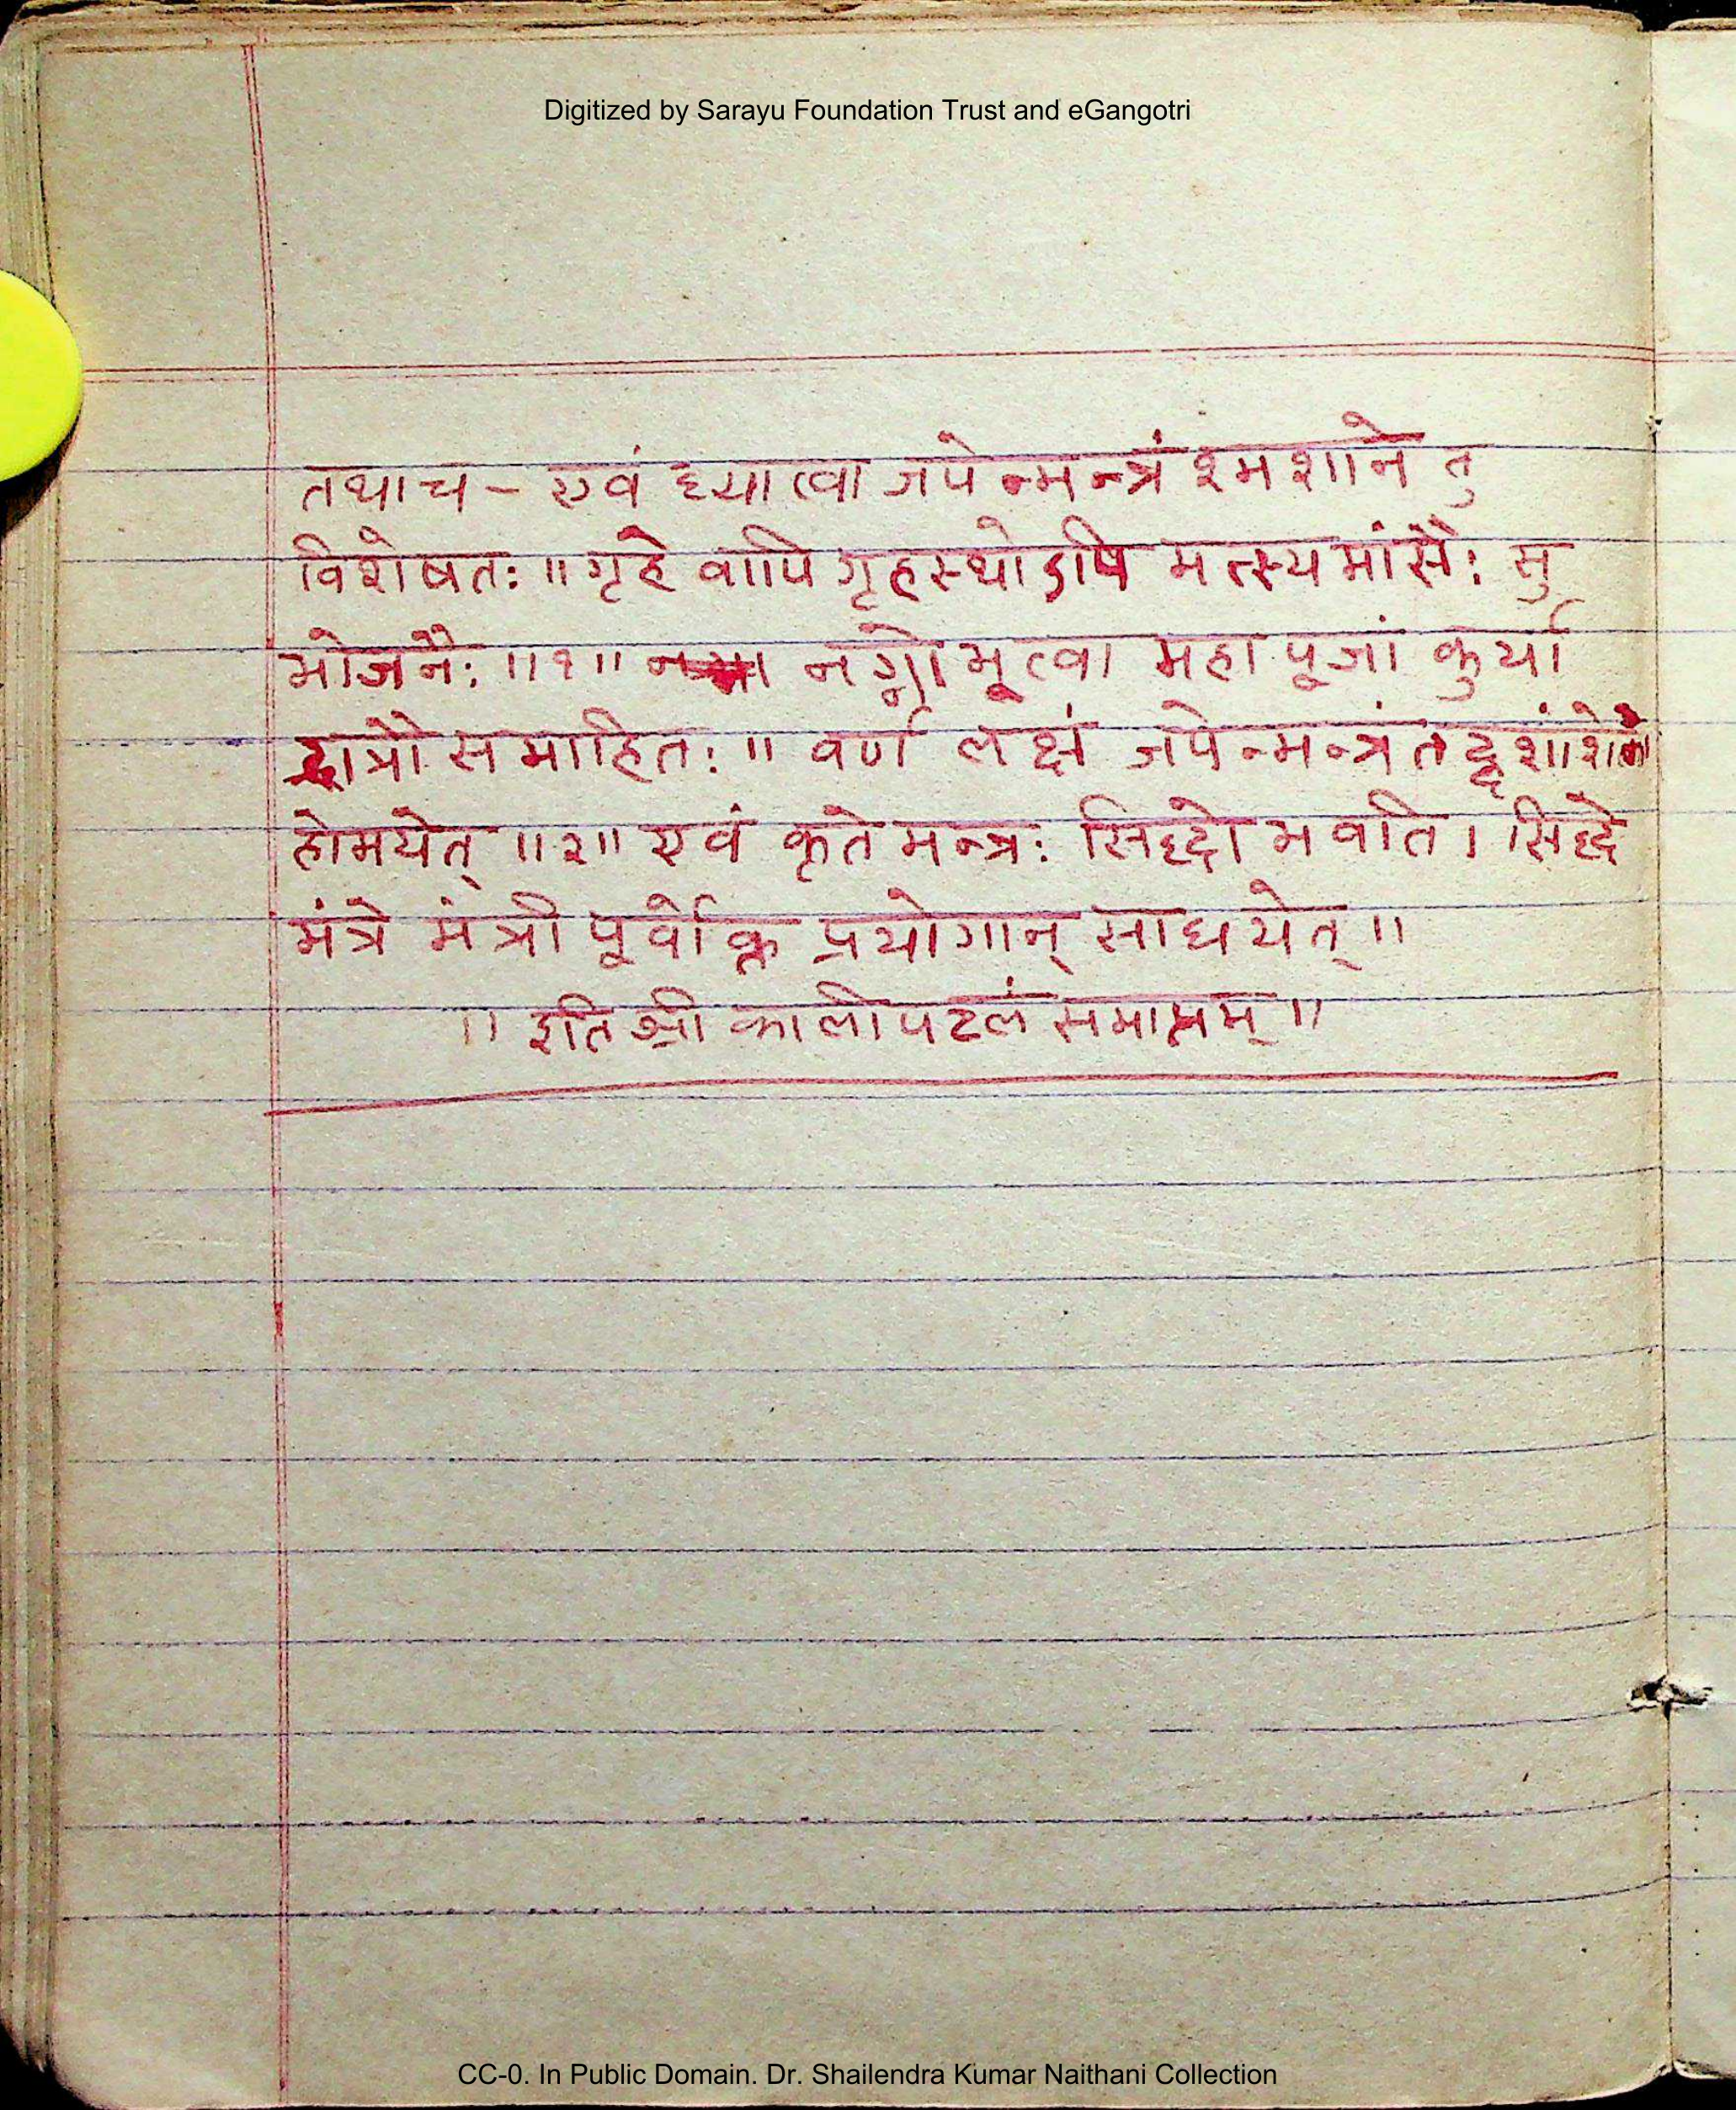 Digitized by Sarayu Foundation Trust and eGangotri
तथाच - एवं ध्यात्वा जपेन्मन्त्रं श्मशाने तु
विशेषतः ॥ गृहे वापि गृहस्थोऽपि मत्स्यमांसैः सु
भोजनैः ॥१॥ नग्नो भूत्वा महापूजां कुर्या
द्रात्रौ समाहितः ॥ वर्ण लक्षं जपेन्मन्त्रं
होमयेत् ॥२॥ एवं कृते मन्त्रः सिद्धो भवति । सिद्धे
मंत्रे मंत्री पूर्वोक्त प्रयोगान् साधयेत् ॥
॥ इति श्री काली पटलं समाप्तम् ॥
CC-0. In Public Domain. Dr. Shailendra Kumar Naithani Collection